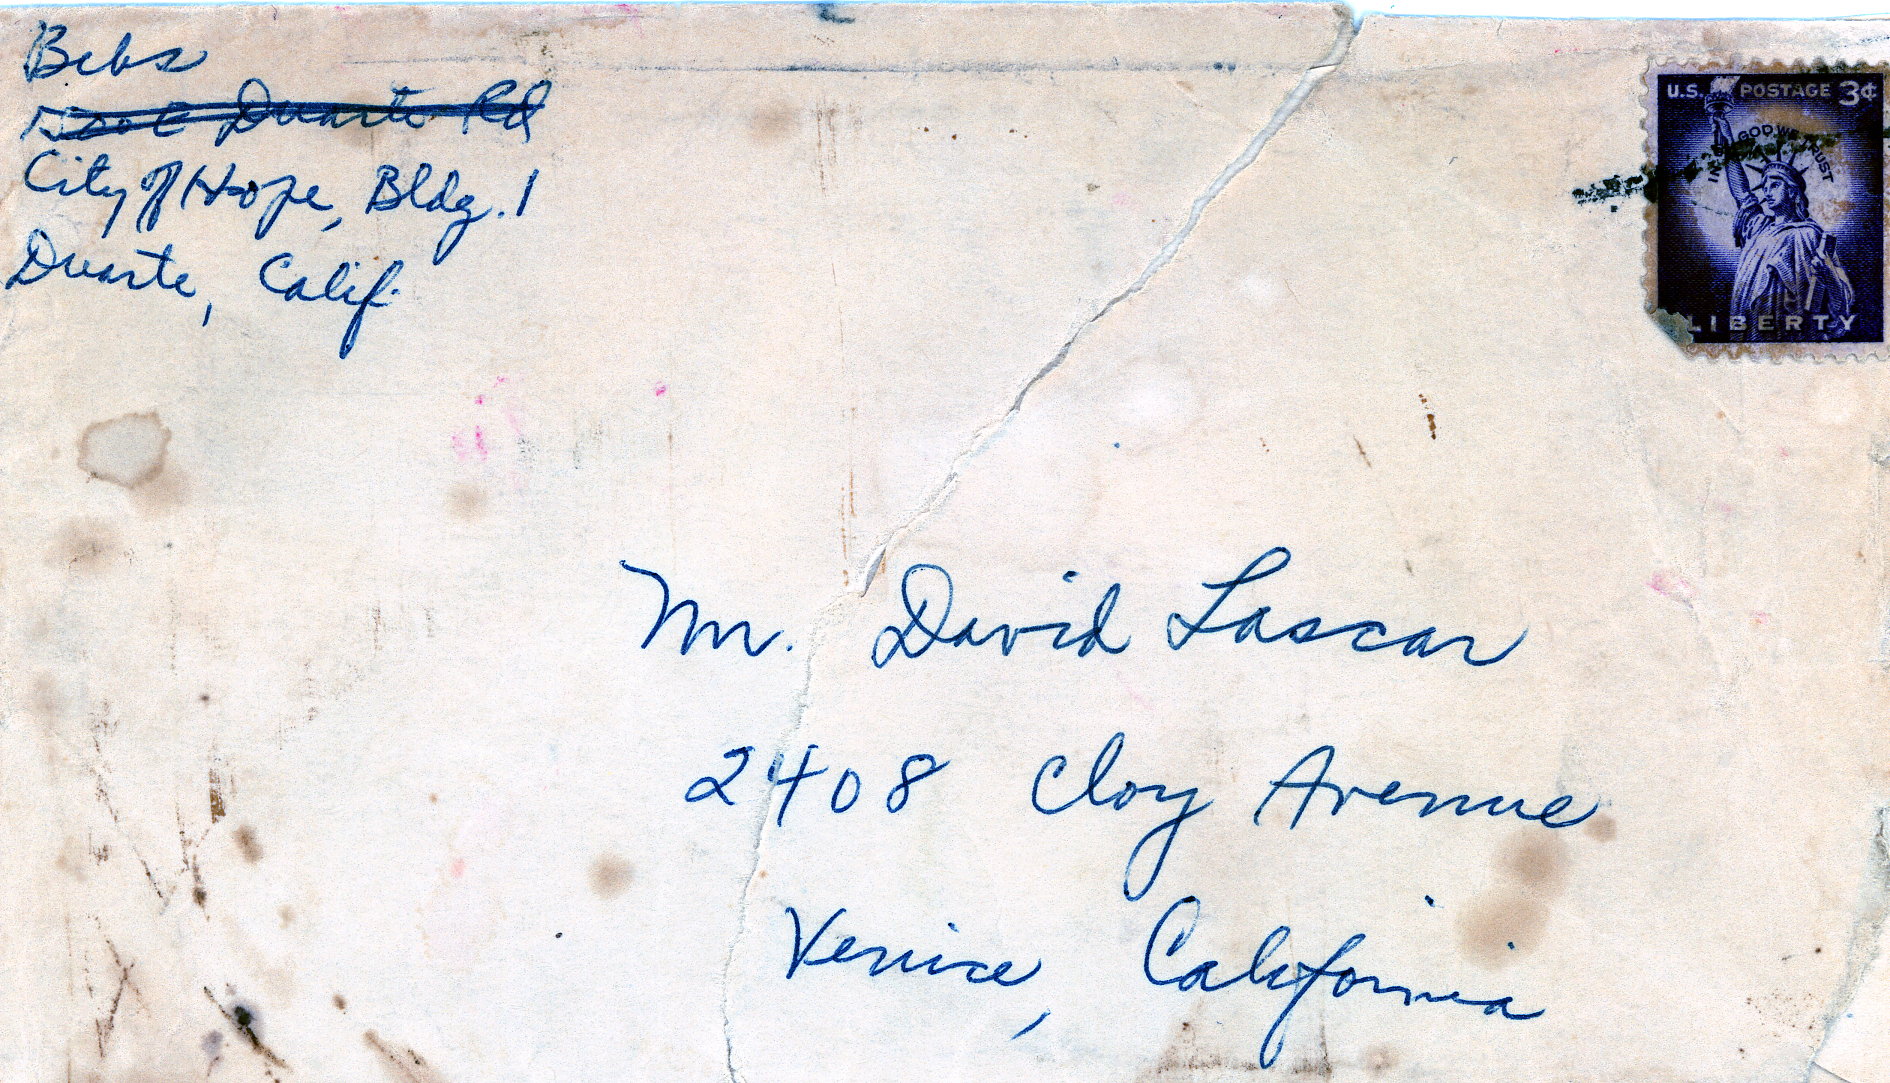 Bebs
Duarte Rd
City of Hope, Bldg. 1
Duarte, Calif.
U.S. POSTAGE 3¢
IN GOD WE TRUST
LIBERTY
Mr. David Lascar
2408 Cloy Avenue
Venice, California